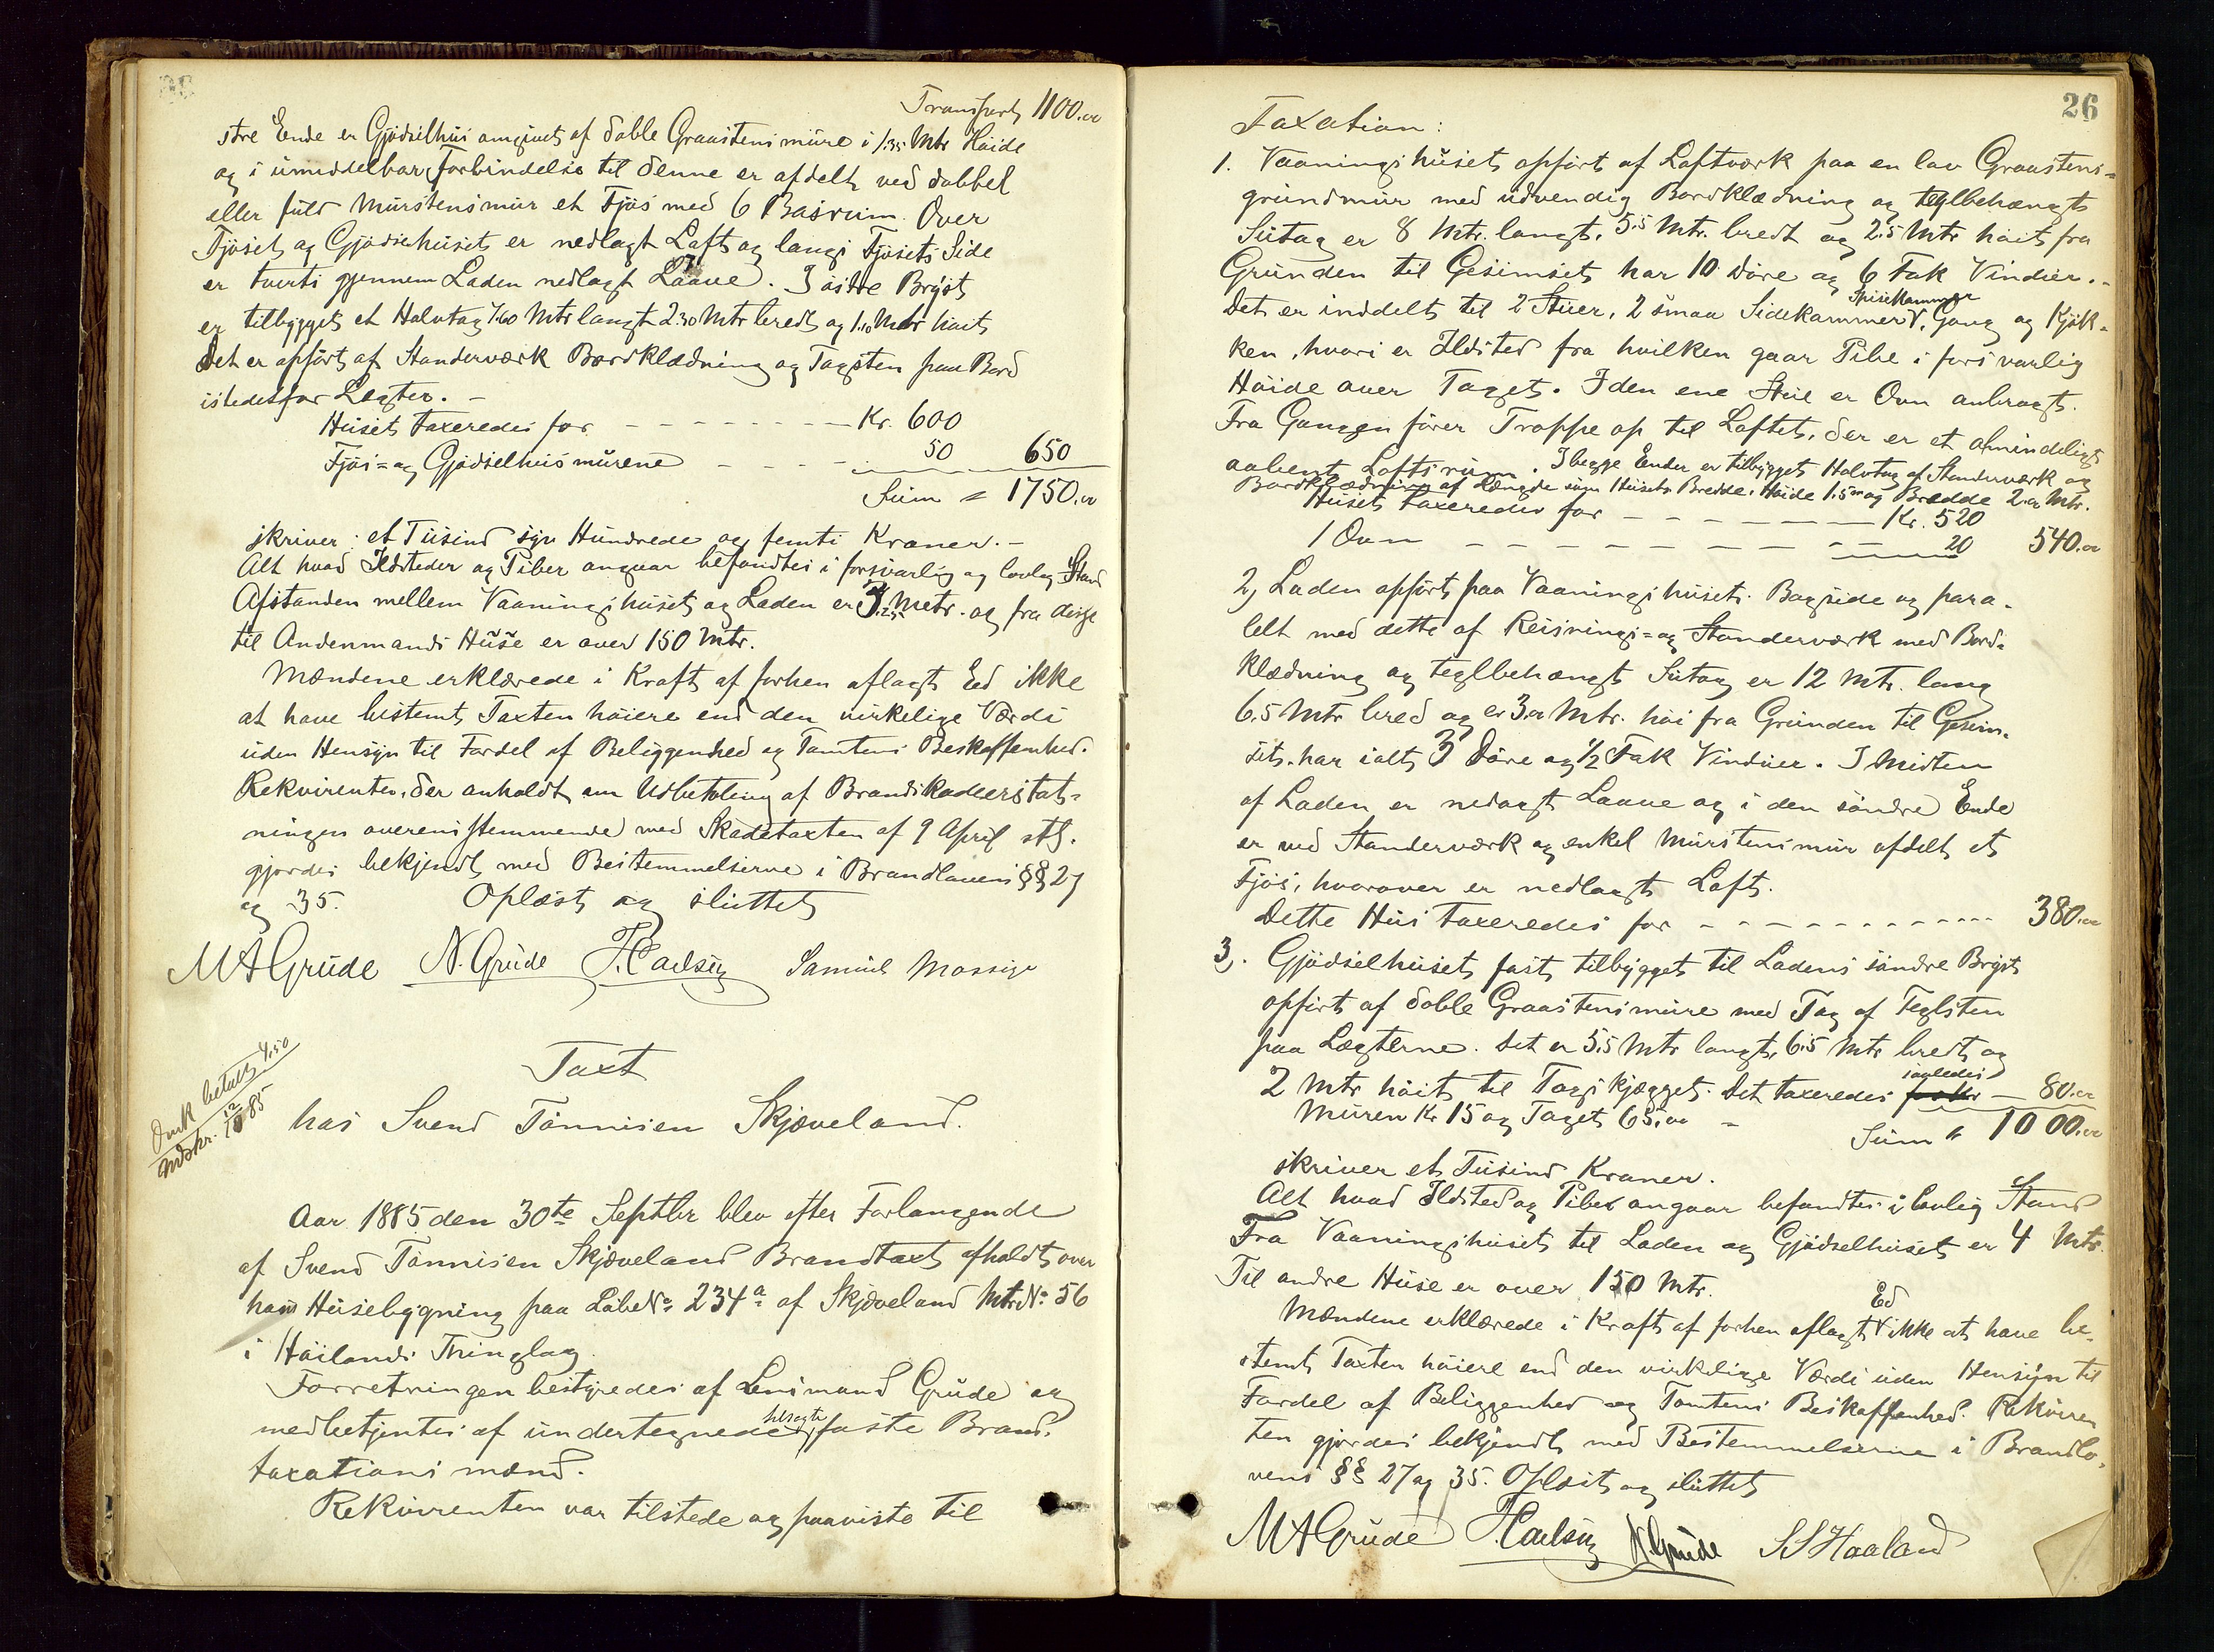 Transport 1100.00
stre Ende er Gjødselhus omgivet af doble Graastensmure i 1.35 Mtr Høide
og i umiddelbar Forbindelse til denne er afdelt ved dobbel
eller fuld Murstensmur et Fjøs med 6 Baasrum. Over
Fjøset og Gjødsehuset er nedlagt Loft og langs Fjøsets Side
er tverts gjennem Laden nedlagt Laave. I östre Bryst
er tilbygget et Halvtag 7.60 Mtr langt 2.30 Mtr bredt og 1.10 Mtr høit
Det er opført af Standerværk Bordklædning og Tagsten paa Bord
istedetfor Legter. –
Huset taxeredes for – – – Kr. 600
Fjøs= og Gjødselhusmurene – – – 50 650
Sum „ 1750.00
skriver: et Tusind syv Hundrede og femti Kroner. –
Alt hvad Ildsteder og Piber angaar befandtes i forsvarlig og lovlig Stand
Afstanden mellem Vaaningshuset og Laden er 3.25 Metr. og fra disse
til Andenmands Huse er over 150 Mtr.
Mændene erklærede i Kraft af forhen aflagt Ed ikke
at have bestemt Taxten høiere end den virkelige Værdi
uden Hensyn til Fordel af Beliggenhed og Tomtens Beskaffenhed.
Rekvirenten, der anholdt om Udbetaling af Brandskadeerstat=
ningen overensstemmende med Skadetaxten af 9 April
gjordes bekjendt med Bestemmelserne i Brandlovens §§ 27
og 35. Oplæst og sluttet
M A Grude N. Grude Samuel Mossige
Duk betalt 4,50
Indskr. 12/10 85
Taxt
hos Svend Tønnesen Skjæveland.
Aar 1885 den 30te Septbr blev efter Forlangende
af Svend Tønnesen Skjæveland Brandtaxt afholdt over
hans Husebygning paa Løbe No. 234a af Skjæveland Mtr No. 56
i Høilands Thinglag.
Forretningen bestyredes af Lensmand Grude og
medbetjentes af undertegnede faste Brand.
taxations mænd.
Rekvirenten var tilstede og paaviste til
26
Taxation:
1. Vaaningshuset opført af Loftværk paa en lav Graastens=
grundmur med udvendig Bordklædning og teglbehængt
Sutag er 8 Mtr. langt, 5.5 Mtr. bredt og 2.5 Mtr høit fra
Grunden til Gesimset har 10 Døre og 6 Fak Vinduer. –
Det er inddelt til 2 Stuer, 2 smaa Sidekammer, Spisekammer Gang og Kjøk=
ken, hvori er Ildsted fra hvilken gaar Pibe i forsvarlig
Høide over Taget. I den ene Stue er Ovn anbragt.
Fra Gangen fører Trappe op til Loftet, der er et almindeligt
aabent Loftsrum. I begge Ender er tilbygget Halvtag af Standerværk og
Bordklædning af Længde som Husets Bredde, Høide 1.5 og Bredde 2.00 Mtr.
Huset taxeredes for – – – Kr. 520
1 Ovn – – – 20 540.00
2, Laden opført paa Vaaningshusets Bagside og para=
lelt med dette af Reisnings= og Standerværk med Bord=
klædning og teglbehængt Sutag er 12 Mtr. lang
6.5 Mtr bred og er 3.00 Mtr. høi fra Grunden til Gesim=
set. har ialt 3 Døre og 1/2 Fak Vinduer. I Midten
af Laden er nedlagt Laave og i den søndre Ende
er ved Standerværk og enkel Murstensmur afdelt et
Fjøs, hvorover er nedlagt Loft.
Dette Hus taxeredes for – – – 380.00
3,. Gjødselhuset fast tilbygget til Ladens søndre Bryst
opført af doble Graastensmure med Tag af Teglsten
paa Lægterne. Det er 5.5 Mtr langt, 6.5 Mtr bredt og
2 Mtr høit til Tagskjægget. Det taxeredes saaledes – 80.00
Muren Kr 15 og Taget 65.00 =
Sum „ 1000.00
skriver et Tusind Kroner.
Alt hvad Ildsted og Piber angaar befandtes i lovlig Stand
Fra Vaaningshuset til Laden og Gjødselhuset er 4 Mtr.
Til andre Huse er over 150 Mtr.
Mændene erklærede i Kraft af forhen aflagt Ed ikke at have be=
stemt Taxten høiere end den virkelige Værdi uden Hensyn til
Fordel af Beliggenhed og Tomtens Beskaffenhed. Rekviren
ten gjordes bekjendt med Bestemmelserne i Brandlo=
vens §§ 27 og 35. Oplæst og sluttet
M A Grude N. Grude S S Haaland